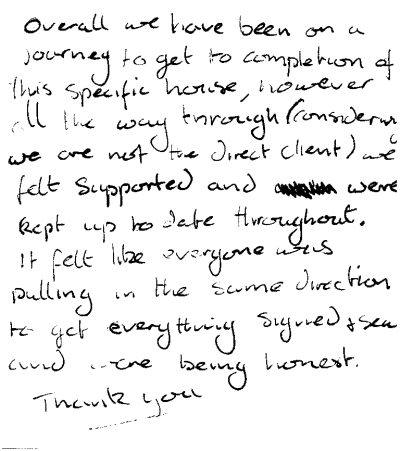 Overall we have been on a
journey to get to completion of
this specific house, however
all the way through (considering
we are not the direct client) we
felt supported and were
kept up to date throughout.
It felt like everyone was
pulling in the same direction
to get everything signed & sea
and were being honest.
Thank you